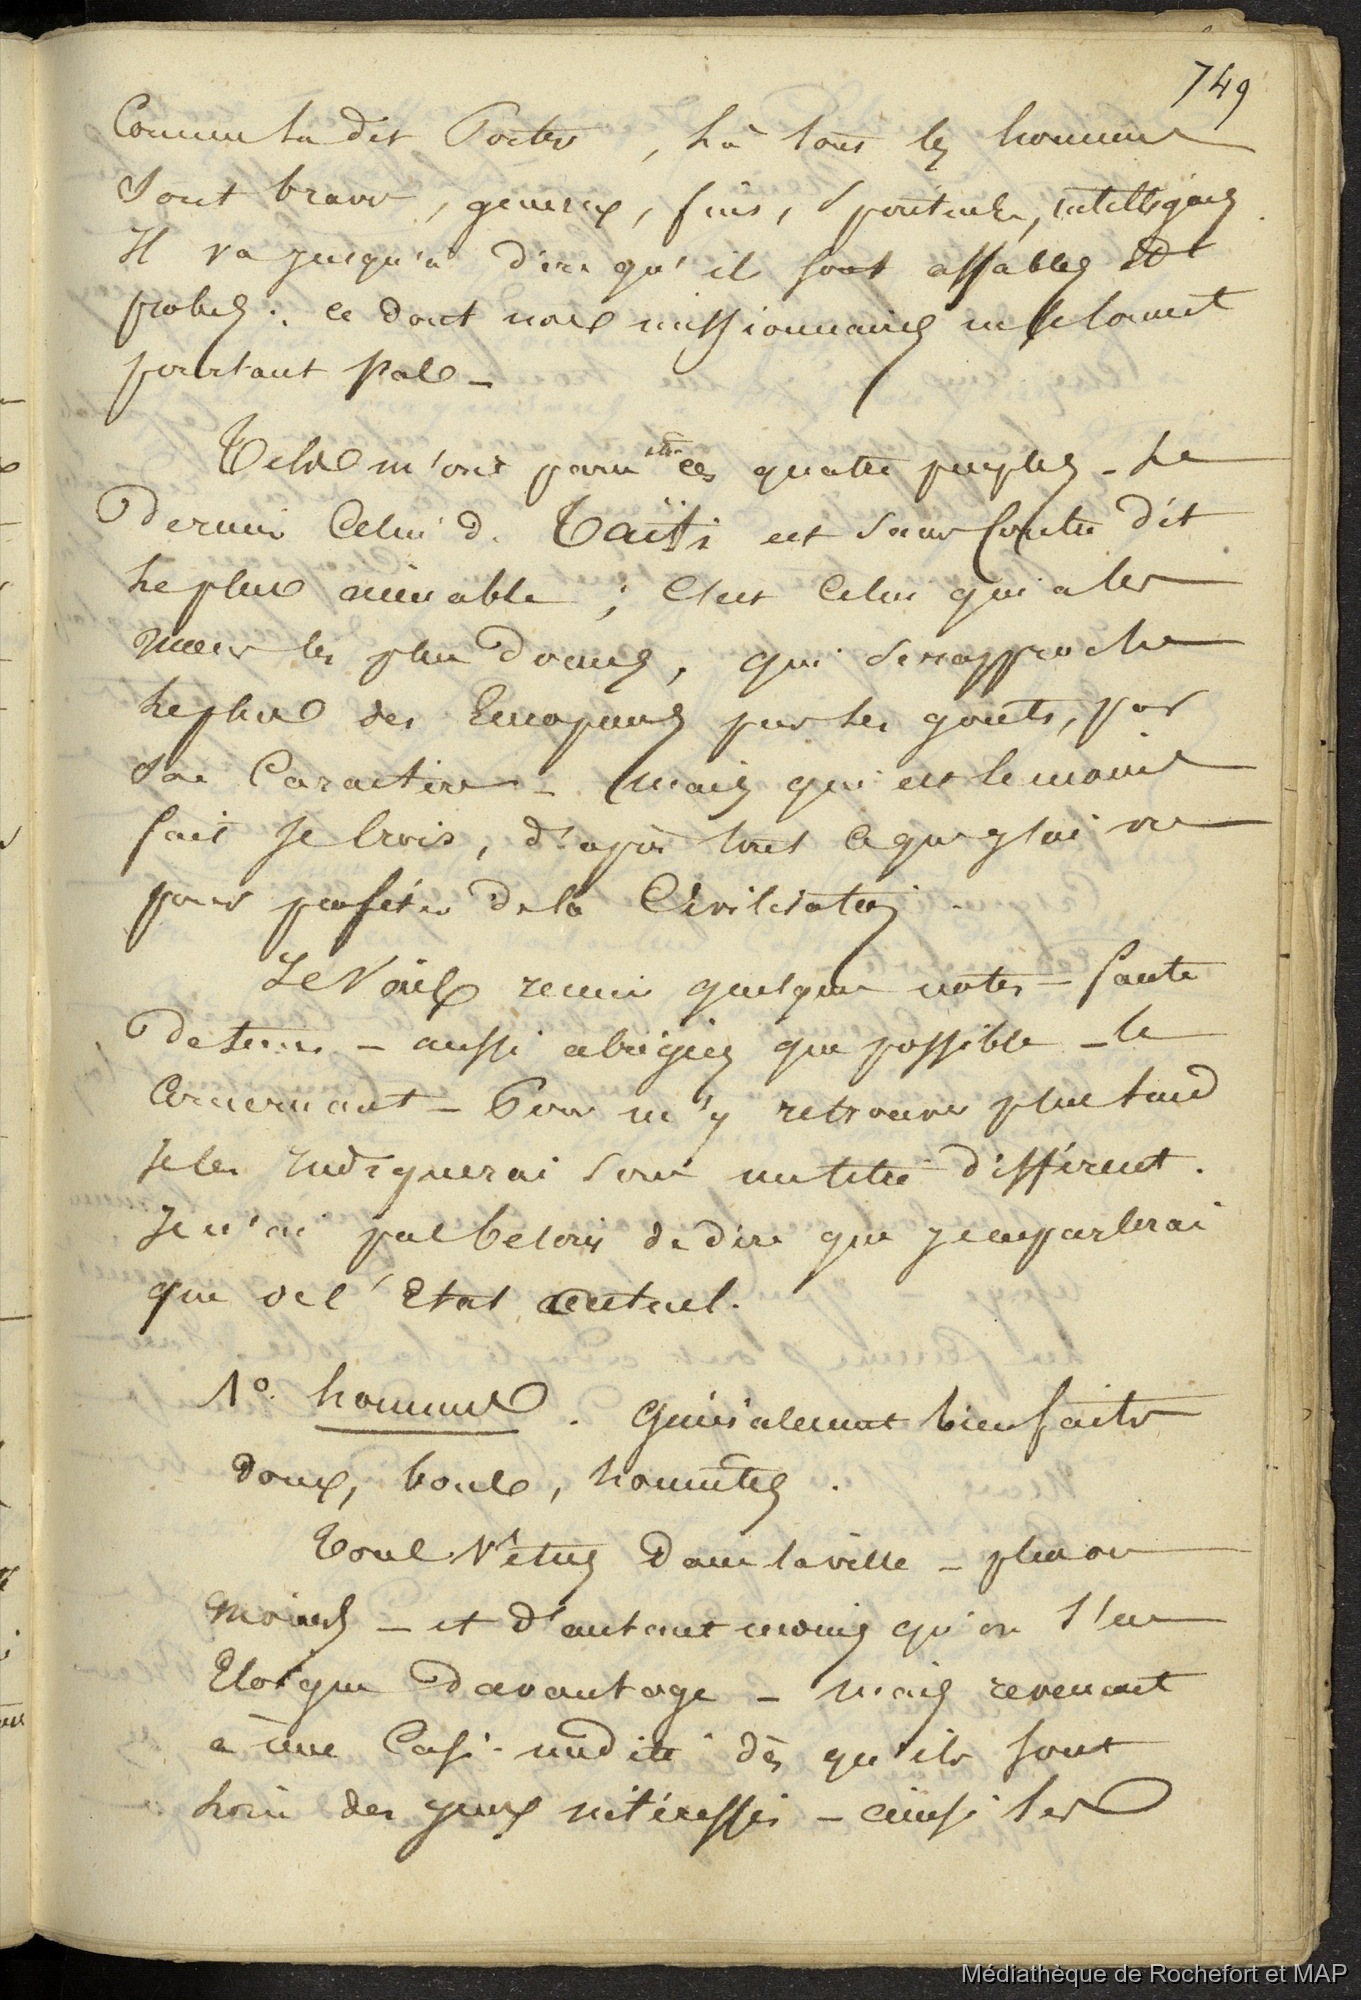 749
Comme l'a dit Porter, là tous les hommes
sont braves, généreux, fins, spontanés, intelligens
Il va jusqu'à dire qu'ils sont affables et
probes : ce dont nos missionnaires ne se louent
pourtant pas _
Tels m'ont paru être ces quatre peuples _ Le
Dernier Celui d. Taïti est sans contre dit
le plus aimable ; C'est Celui qui a les
mœurs les plus douces, qui se rapproche
le plus des Européens par les gouts, par
son Caractère _ mais qui est le moins
fait Je crois, d'après tout ce que j'ai vu
pour profiter de la Civilisation.
Je vais réunir quelques notes _ faute
de tems _ aussi abrégées que possible _ le
Concernant _ Pour m'y retrouver plus tard
Je les Indiquerai sous un titre différent.
Je n'ai pas besoin de dire que Je ne parlerai
que de l'Etat actuel.
1º. hommes. Généralement bien faits
doux, bons, honnêtes.
Tous Vêtus dans la ville _ plus ou
moins _ et d'autant moins qu'on s'en
Eloigne Davantage _ mais revenant
a une Casi-nudité dès qu'ils sont
loin des yeux intéressés _ ainsi les
Médiathèque de Rochefort et MAP